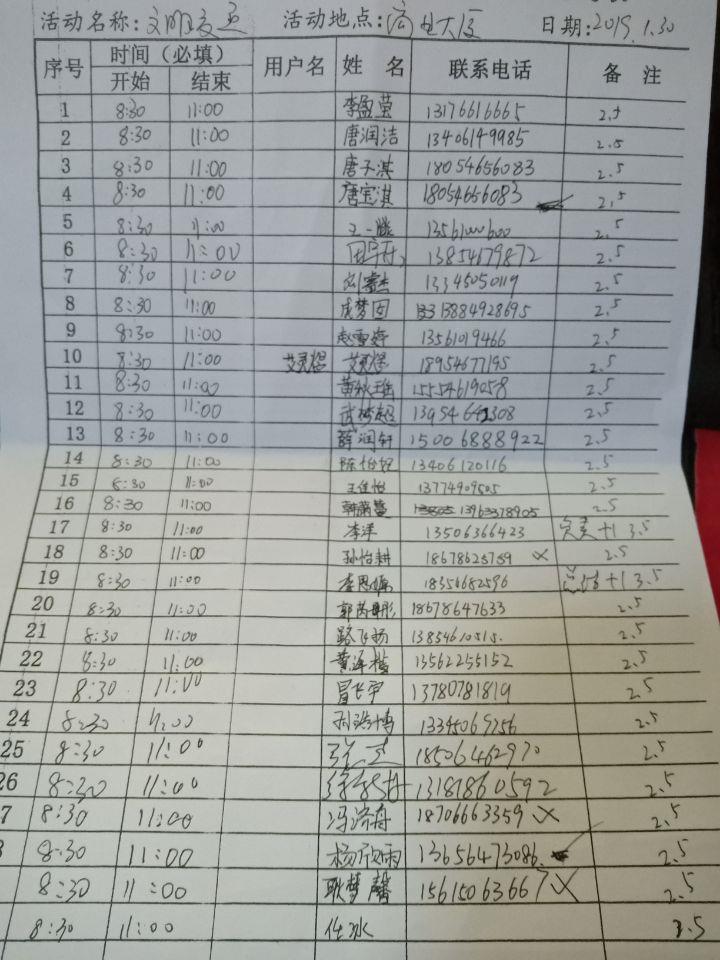 活动名称: 文明交通 活动地点: 商电大厦 日期: 2019.1.30
序号 时间（必填） 用户名 姓 名 联系电话 备 注
开始 结束
1 8:30 11:00 李盈莹 13176616665 2.5
2 8:30 11:00 唐润洁 13406149985 2.5
3 8:30 11:00 唐子淇 18054656083 2.5
4 8:30 11:00 唐宝淇 18054656083 2.5
5 8:30 11:00 2.5
6 8:30 11:00 13854679872 2.5
7 8:30 11:00 13345050119 2.5
8 8:30 11:00 13884928695 2.5
9 8:30 11:00 13561019466 2.5
10 8:30 11:00 18954677195 2.5
11 8:30 11:00 15554619058 2.5
12 8:30 11:00 2.5
13 8:30 11:00 薛润轩 15006888922 2.5
14 8:30 11:00 陈怡妃 13406120116 2.5
15 8:30 11:00 王佳怡 13774909505 2.5
16 8:30 11:00 13963378905 2.5
17 8:30 11:00 李洋 13506366423 +1 3.5
18 8:30 11:00 孙怡耕 18678625759 × 2.5
19 8:30 11:00 18356682596 总结+1 3.5
20 8:30 11:00 18678647633 2.5
21 8:30 11:00 路飞扬 2.5
22 8:30 11:00 黄泽楷 13562255152 2.5
23 8:30 11:00 13780781819 2.5
24 8:30 11:00 孙浩博 13345069756 2.5
25 8:30 11:00 18506462970 2.5
26 8:30 11:00 13181860592 2.5
7 8:30 11:00 冯济舟 18706663359 × 2.5
8:30 11:00 杨欣雨 13656473086 2.5
8:30 11:00 耿梦馨 15615063667 × 2.5
8:30 11:00 任冰 3.5